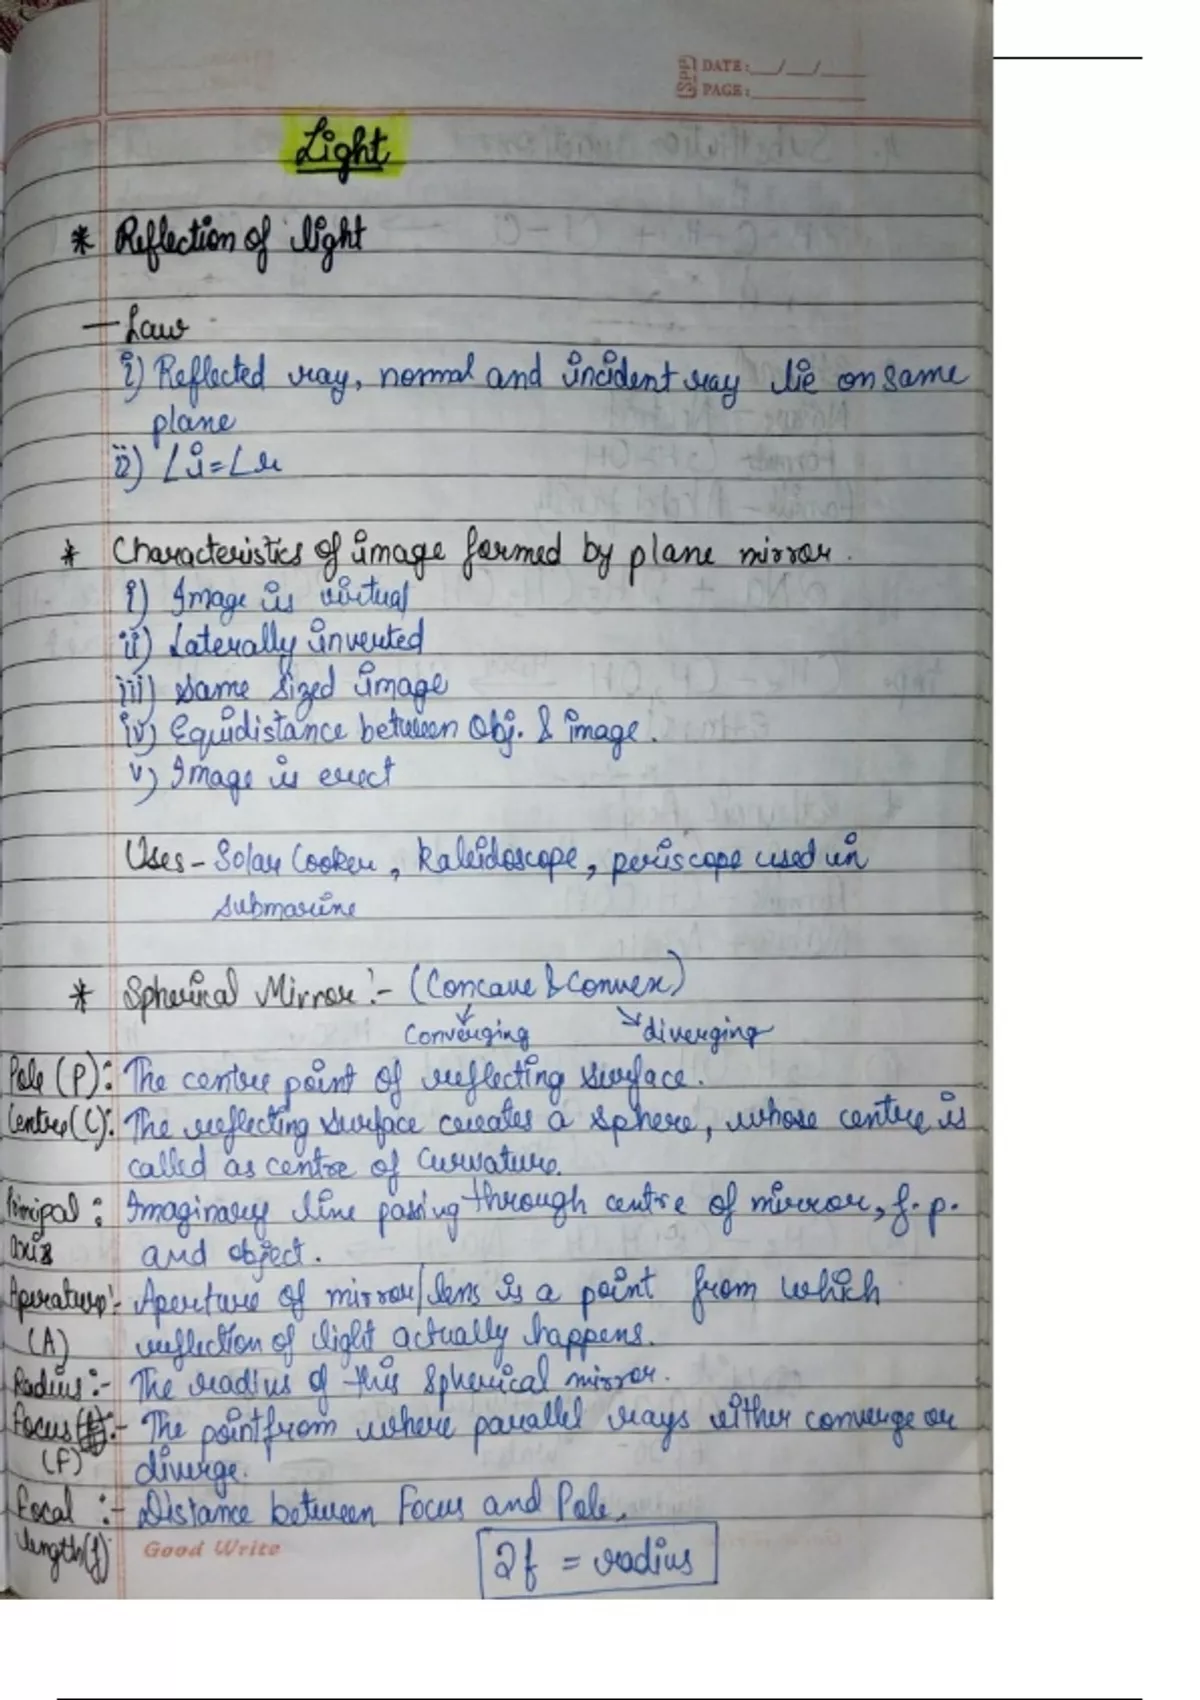 SPP DATE:__/__/____
PAGE:
Light
* Reflection of light
— Law
i) Reflected ray, normal and incident ray lie on same
plane
ii) ∠i = ∠r
* Characteristics of image formed by plane mirror.
i) Image is virtual
ii) Laterally inverted
iii) Same sized image
iv) Equidistance between Obj. & image.
v) Image is erect
Uses - Solar Cooker, kaleidoscope, periscope used in
submarine
* Spherical Mirror :- (Concave & Convex)
Converging diverging
Pole (P): The centre point of reflecting surface.
Centre (C): The reflecting surface creates a sphere, whose centre is
called as centre of Curvature.
Principal : Imaginary line passing through centre of mirror, f.p.
axis and object.
Aperature :- Aperture of mirror/lens is a point from which
(A) reflection of light actually happens.
Radius :- The radius of this Spherical mirror.
Focus :- The point from where parallel rays either converge or
(F) diverge.
Focal :- Distance between Focus and Pole.
length (f)
Good Write
2f = radius